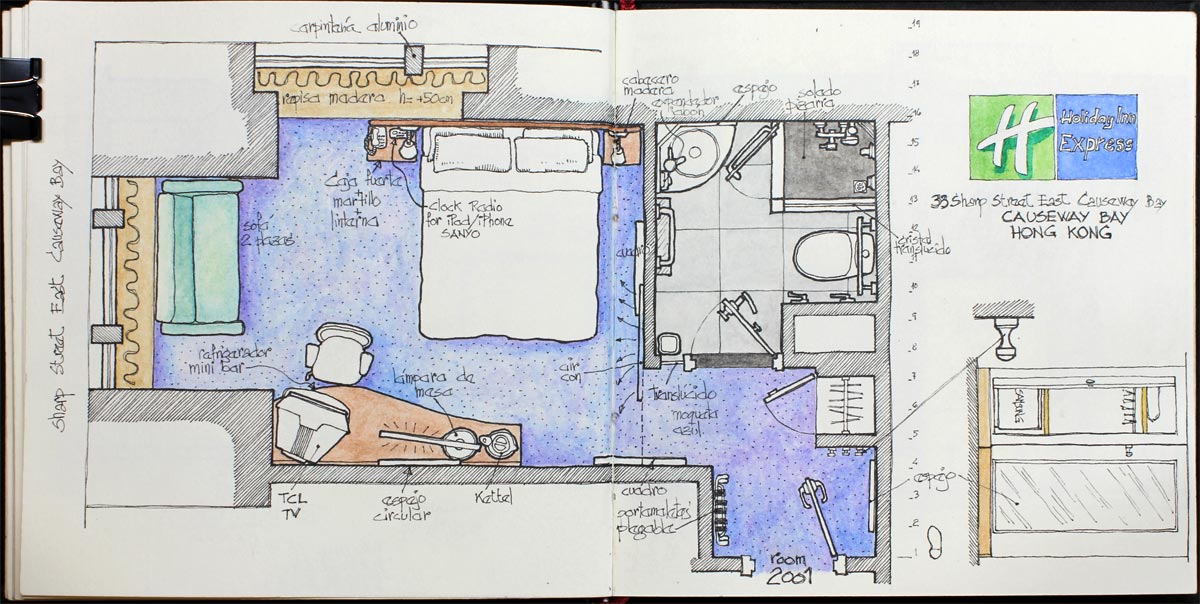 carpintería aluminio
repisa madera h=+50cm
cabecero
madera
expendedor
jabon
espejo
solado
pizarra
19
18
17
16
15
14
13
12
11
10
9
8
7
6
5
4
3
2
1
H
Holiday Inn
Express
33 Sharp Street East Causeway Bay
CAUSEWAY BAY
HONG KONG
Sharp Street East Causeway Bay
sofá
2 plazas
Caja fuerte
martillo
linterna
Clock Radio
for iPad/iPhone
SANYO
cuadro
cristal
translucido
refrigerador
mini bar
lampara de
mesa
air
con
translucido
moqueta
azul
TCL
TV
espejo
circular
Kettel
cuadro
portamaletas
plegable
espejo
room
2001